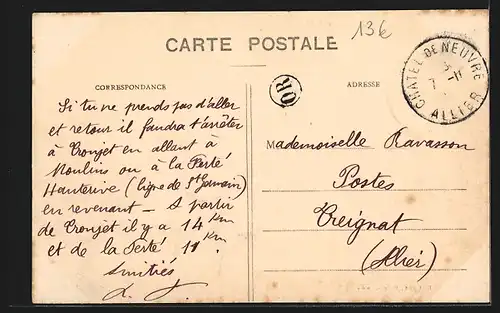 13€
CARTE POSTALE
CORRESPONDANCE
OR
ADRESSE
CHATEL DE NEUVRE
7 -11
ALLIER
Si tu ne prends pas d'aller
et retour il faudra t'arrêter
à Tronjet en allant à
Moulins ou à la Ferté
Hauterive (ligne de St Germain)
en revenant — A partir
de Tronjet il y a 14 Km
et de la Ferté 11 Km
Amitiés
Mademoiselle Ravasson
Postes
Treignat
(Allier)